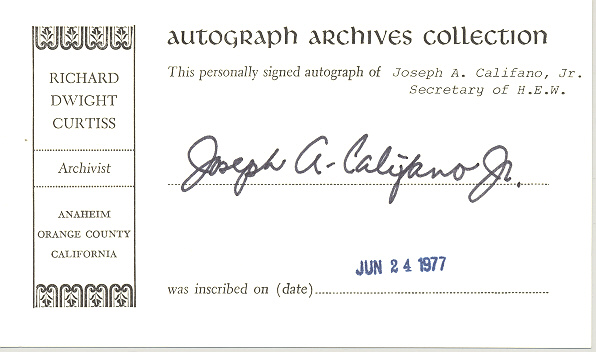 autograph archives collection
This personally signed autograph of Joseph A. Califano, Jr.
Secretary of H.E.W.
RICHARD
DWIGHT
CURTISS
Archivist
ANAHEIM
ORANGE COUNTY
CALIFORNIA
Joseph A. Califano Jr.
JUN 24 1977
was inscribed on (date)